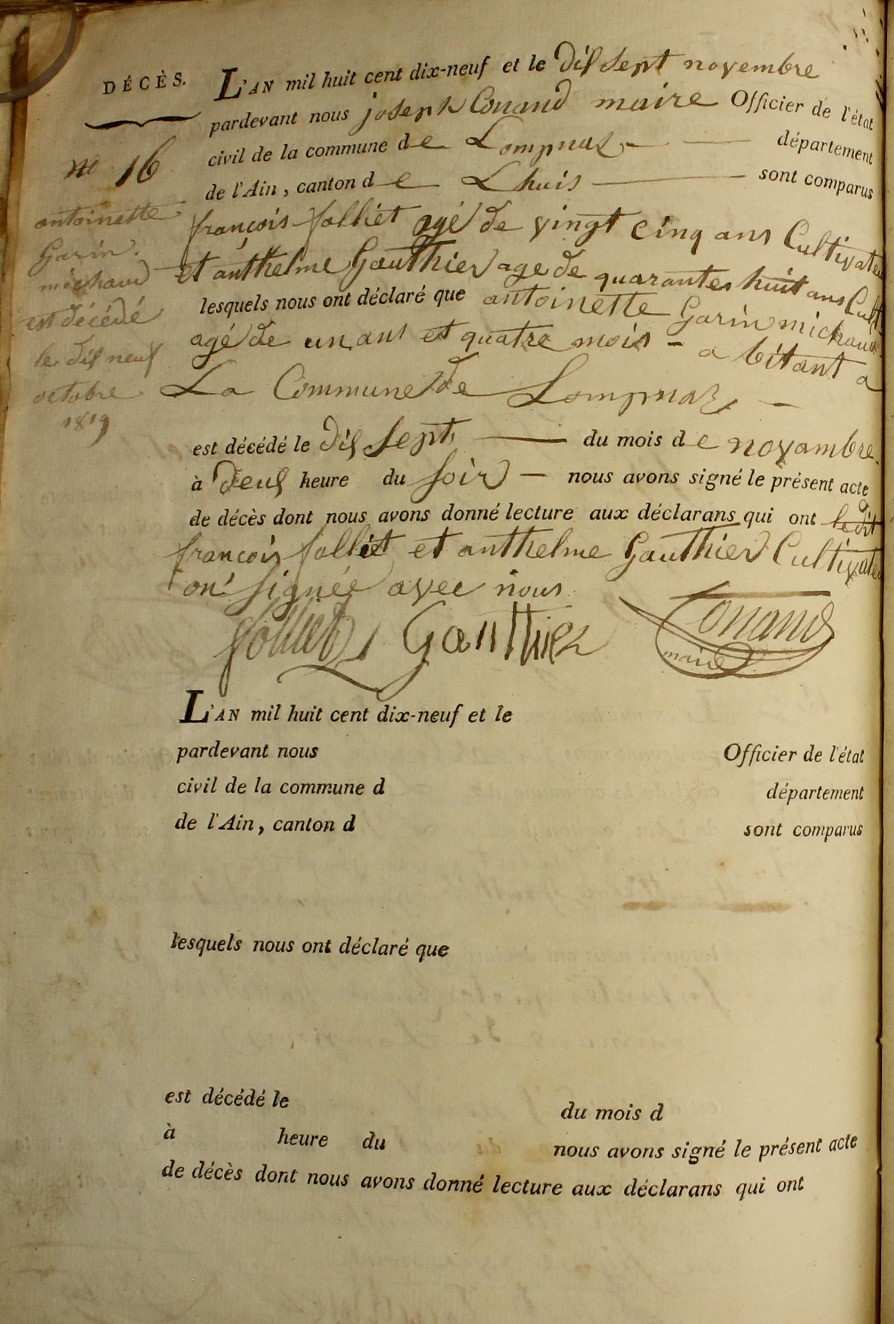 DÉCÈS.
n° 16
antoinette
Garin
michaud
est décédé
le dif neuf
octobre
1819
L'AN mil huit cent dix-neuf et le dif sept novembre
pardevant nous joseph Conand maire Officier de l'état
civil de la commune de Lompnaz département
de l'Ain, canton de Lhuis sont comparus
françois folliet agé de vingt cinq ans Cultivateu
et anthelme Gauthier age de quarantes huit ans Cult
lesquels nous ont déclaré que antoinette Garin michaud
agé de un ans et quatre mois - a bitant a
La Commune de Lompnaz
est décédé le dif sept du mois de novambre
à deuf heure du soir nous avons signé le présent acte
de décès dont nous avons donné lecture aux déclarans qui ont
françois folliet et anthelme Gauthier Cultivate
ont signée avec nous
folliet Gauthier Conand
maire
L'AN mil huit cent dix-neuf et le
pardevant nous Officier de l'état
civil de la commune d département
de l'Ain, canton d sont comparus
lesquels nous ont déclaré que
est décédé le du mois d
à heure du nous avons signé le présent acte
de décès dont nous avons donné lecture aux déclarans qui ont